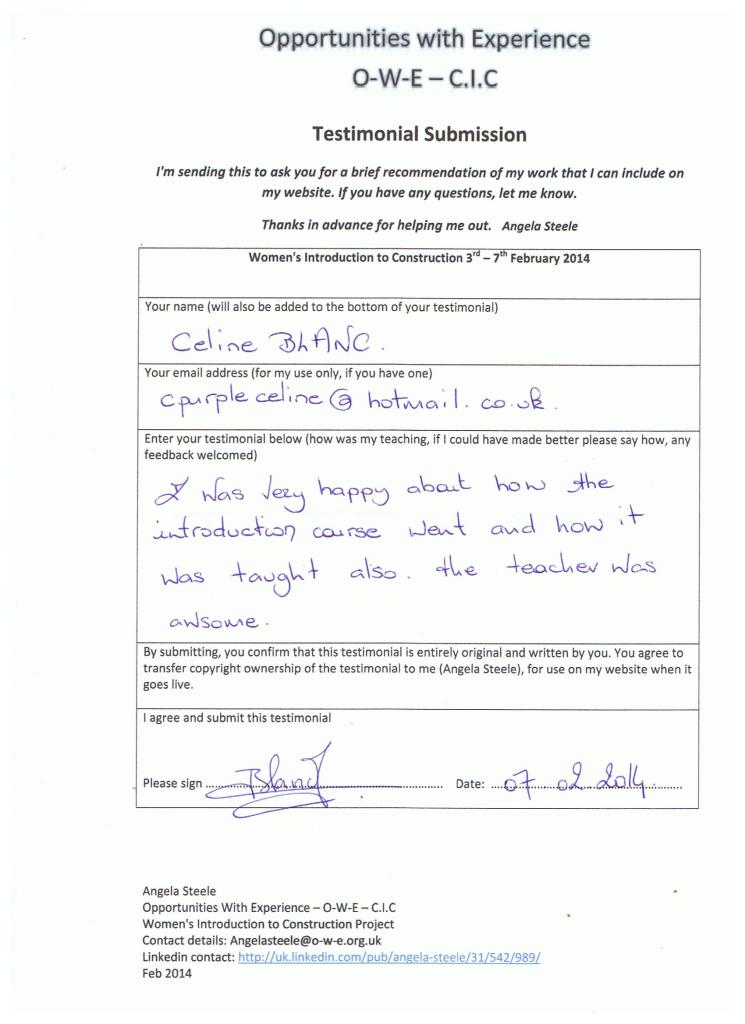 Opportunities with Experience
O-W-E – C.I.C
Testimonial Submission
I'm sending this to ask you for a brief recommendation of my work that I can include on
my website. If you have any questions, let me know.
Thanks in advance for helping me out. Angela Steele
Women's Introduction to Construction 3rd – 7th February 2014
Your name (will also be added to the bottom of your testimonial)
Celine BLANC.
Your email address (for my use only, if you have one)
cpurpleceline@hotmail.co.uk.
Enter your testimonial below (how was my teaching, if I could have made better please say how, any
feedback welcomed)
I was very happy about how the
introduction course went and how it
was taught also. the teacher was
awsome.
By submitting, you confirm that this testimonial is entirely original and written by you. You agree to
transfer copyright ownership of the testimonial to me (Angela Steele), for use on my website when it
goes live.
I agree and submit this testimonial
Please sign ........ Blanc ........ Date: ....07 02 2014........
Angela Steele
Opportunities With Experience – O-W-E – C.I.C
Women's Introduction to Construction Project
Contact details: Angelasteele@o-w-e.org.uk
Linkedin contact: http://uk.linkedin.com/pub/angela-steele/31/542/989/
Feb 2014